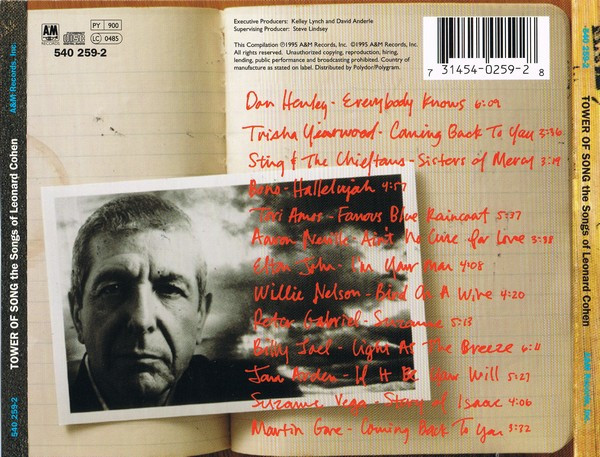 A&M Records, Inc.
TOWER OF SONG the Songs of Leonard Cohen
540 259-2
A&M
RECORDS
COMPACT
disc
DIGITAL AUDIO
PY 900
LC 0485
540 259-2
Executive Producers: Kelley Lynch and David Anderle
Supervising Producer: Steve Lindsey
This Compilation ℗1995 A&M Records, Inc. ©1995 A&M Records, Inc.
All rights reserved. Unauthorized copying, reproduction, hiring,
lending, public performance and broadcasting prohibited. Country of
manufacture as stated on label. Distributed by Polydor/Polygram.
7 31454-0259-2 8
Don Henley - Everybody Knows 6:09
Trisha Yearwood - Coming Back To You 3:36
Sting & The Chieftans - Sisters of Mercy 3:29
Bono - Hallelujah 4:57
Tori Amos - Famous Blue Raincoat 5:37
Aaron Neville - Ain't No Cure for Love 3:98
Elton John - I'm Your Man 4:08
Willie Nelson - Bird On A Wire 4:20
Peter Gabriel - Suzanne 5:13
Billy Joel - Light As The Breeze 6:11
Jann Arden - If It Be Your Will 5:27
Suzanne Vega - Story of Isaac 4:06
Martin Gore - Coming Back To You 3:32
540 259-2
TOWER OF SONG the Songs of Leonard Cohen
A&M Records, Inc.